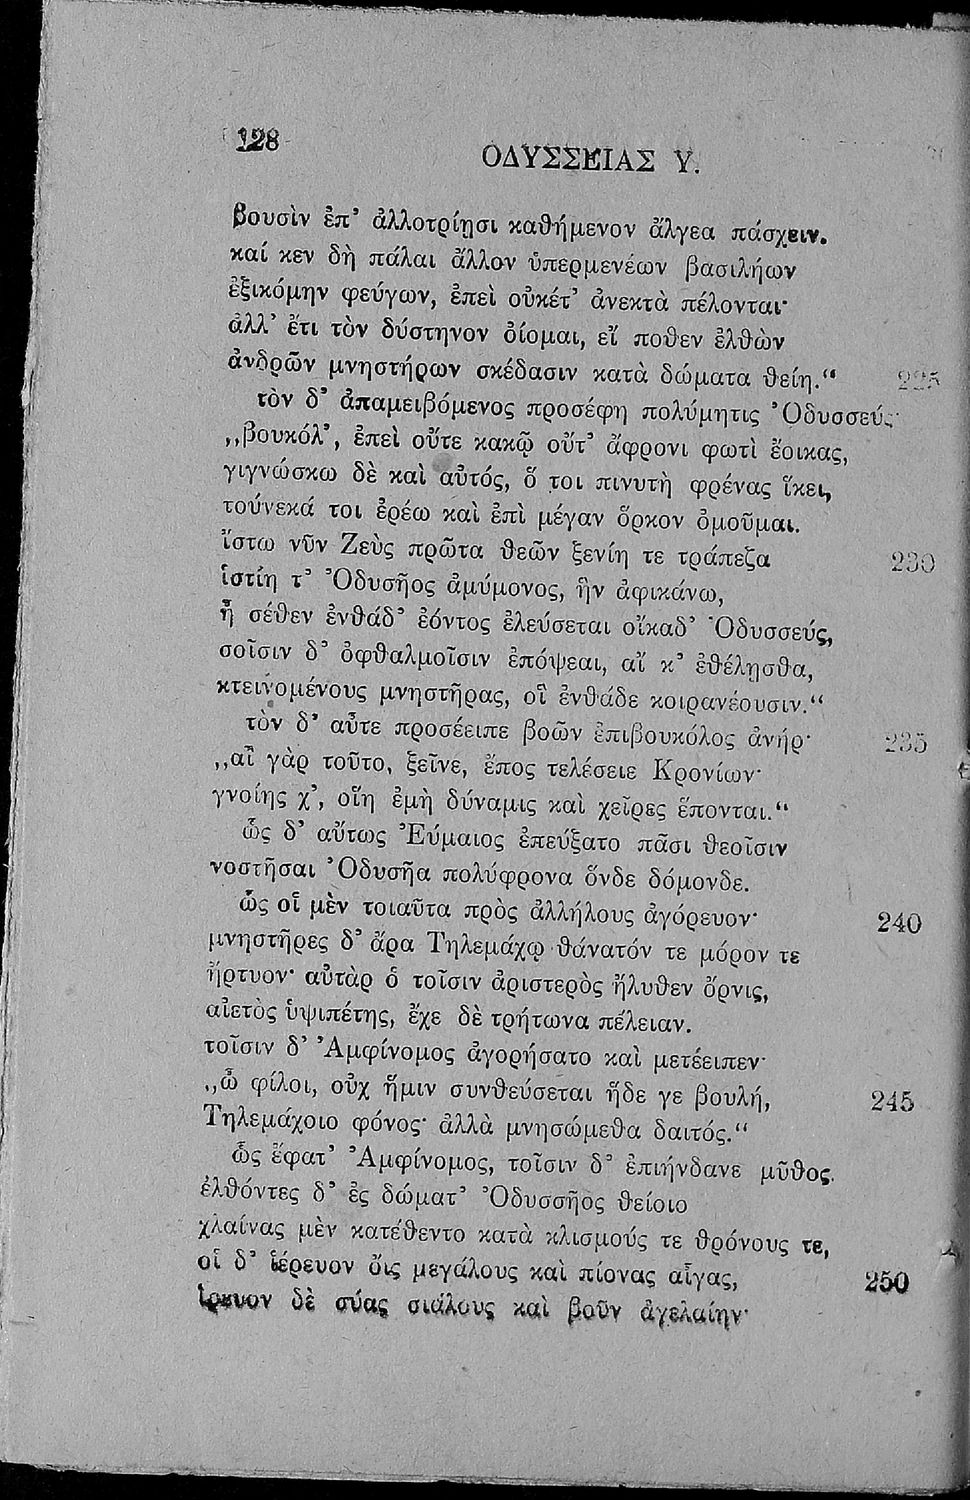 128
ΟΔΥΣΣΕΙΑΣ Υ.
βουσὶν ἐπ' ἀλλοτρίῃσι καθήμενον ἄλγεα πάσχειν.
καί κεν δὴ πάλαι ἄλλον ὑπερμενέων βασιλήων
ἐξικόμην φεύγων, ἐπεὶ οὐκέτ' ἀνεκτὰ πέλονται·
ἀλλ' ἔτι τὸν δύστηνον ὀίομαι, εἴ ποθεν ἐλθὼν
ἀνδρῶν μνηστήρων σκέδασιν κατὰ δώματα θείη.“ 225
τὸν δ' ἀπαμειβόμενος προσέφη πολύμητις Ὀδυσσεύς·
„βουκόλ', ἐπεὶ οὔτε κακῷ οὔτ' ἄφρονι φωτὶ ἔοικας,
γιγνώσκω δὲ καὶ αὐτός, ὅ τοι πινυτὴ φρένας ἵκει,
τούνεκά τοι ἐρέω καὶ ἐπὶ μέγαν ὅρκον ὀμοῦμαι.
ἴστω νῦν Ζεὺς πρῶτα θεῶν ξενίη τε τράπεζα 230
ἱστίη τ' Ὀδυσῆος ἀμύμονος, ἣν ἀφικάνω,
ἦ σέθεν ἐνθάδ' ἐόντος ἐλεύσεται οἴκαδ' Ὀδυσσεύς,
σοῖσιν δ' ὀφθαλμοῖσιν ἐπόψεαι, αἴ κ' ἐθέλῃσθα,
κτεινομένους μνηστῆρας, οἳ ἐνθάδε κοιρανέουσιν.“
τὸν δ' αὖτε προσέειπε βοῶν ἐπιβουκόλος ἀνήρ· 235
„αἲ γὰρ τοῦτο, ξεῖνε, ἔπος τελέσειε Κρονίων·
γνοίης χ', οἵη ἐμὴ δύναμις καὶ χεῖρες ἕπονται.“
ὣς δ' αὔτως Εὔμαιος ἐπεύξατο πᾶσι θεοῖσιν
νοστῆσαι Ὀδυσῆα πολύφρονα ὅνδε δόμονδε.
ὣς οἳ μὲν τοιαῦτα πρὸς ἀλλήλους ἀγόρευον· 240
μνηστῆρες δ' ἄρα Τηλεμάχῳ θάνατόν τε μόρον τε
ἤρτυον· αὐτὰρ ὁ τοῖσιν ἀριστερὸς ἤλυθεν ὄρνις,
αἰετὸς ὑψιπέτης, ἔχε δὲ τρήτωνα πέλειαν.
τοῖσιν δ' Ἀμφίνομος ἀγορήσατο καὶ μετέειπεν·
„ὦ φίλοι, οὐχ ἥμιν συνθεύσεται ἥδε γε βουλή, 245
Τηλεμάχοιο φόνος· ἀλλὰ μνησώμεθα δαιτός.“
ὣς ἔφατ' Ἀμφίνομος, τοῖσιν δ' ἐπιήνδανε μῦθος.
ἐλθόντες δ' ἐς δώματ' Ὀδυσσῆος θείοιο
χλαίνας μὲν κατέθεντο κατὰ κλισμούς τε θρόνους τε,
οἱ δ' ἱέρευον ὄις μεγάλους καὶ πίονας αἶγας, 250
ἵρευον δὲ σύας σιάλους καὶ βοῦν ἀγελαίην·